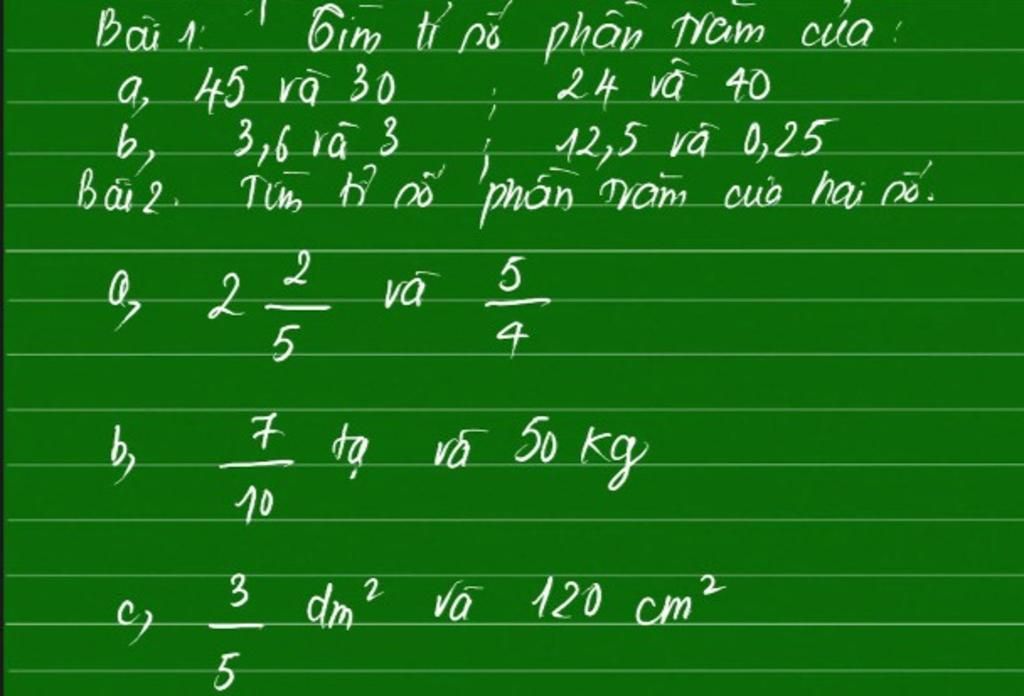 Bài 1: Tìm tỉ số phần trăm của:
a, 45 và 30 ; 24 và 40
b, 3,6 và 3 ; 12,5 và 0,25
Bài 2. Tìm tỉ số phần trăm của hai số.
a, 2 2/5 và 5/4
b, 7/10 tạ và 50 kg
c, 3/5 dm² và 120 cm²